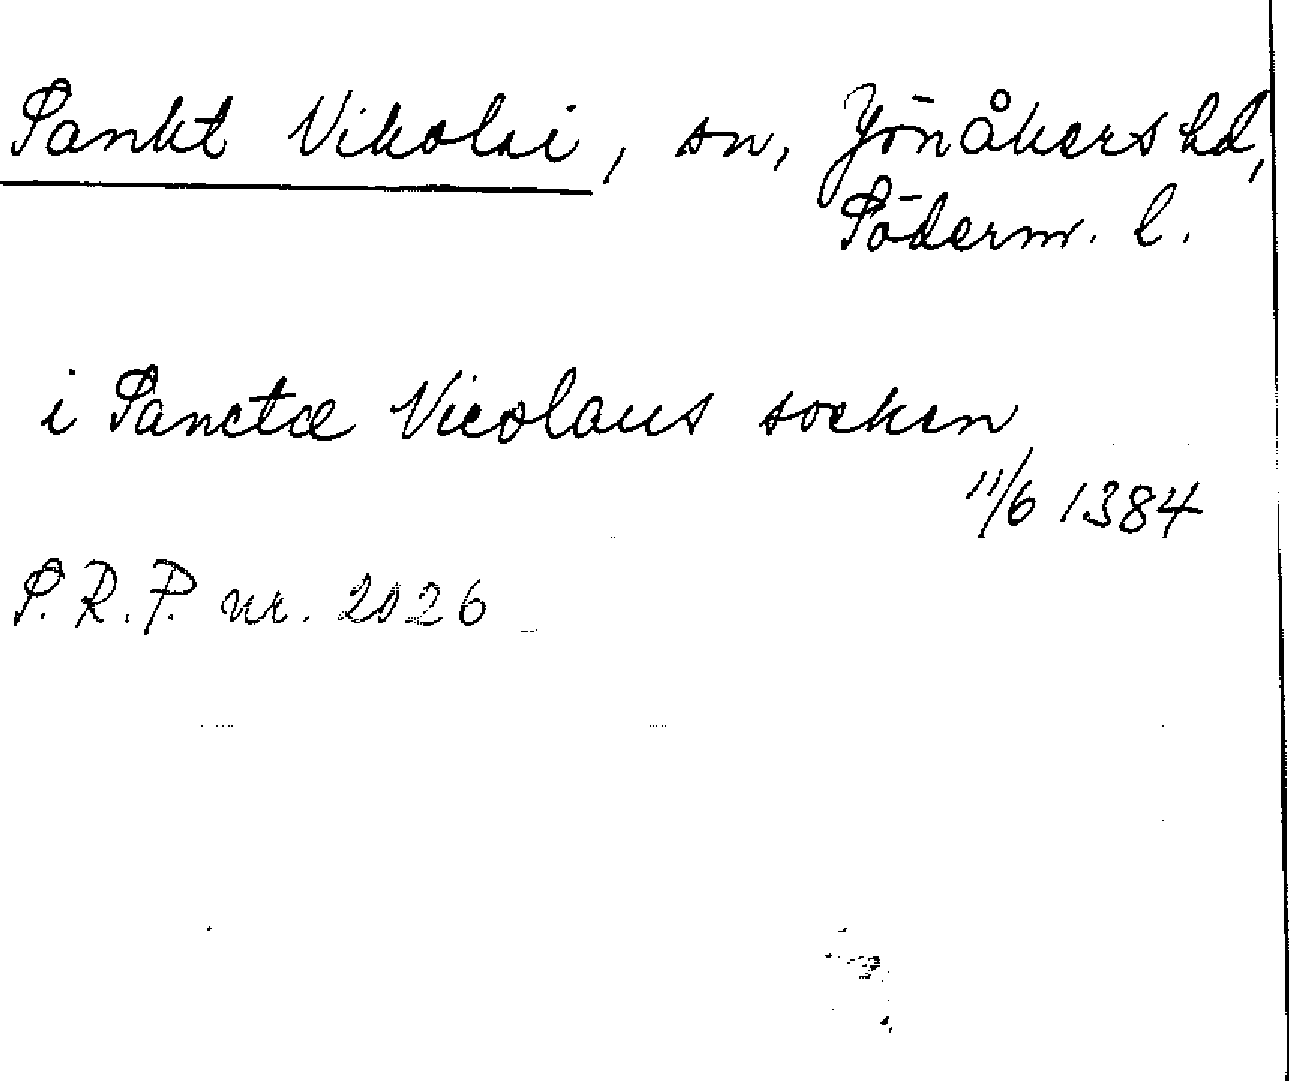 Sankt Nikolai, sn, Jönåkers hd,
Söderm. l.
i Sanctæ Nicolaus socken
11/6 1384
S.R.P. nr. 2026